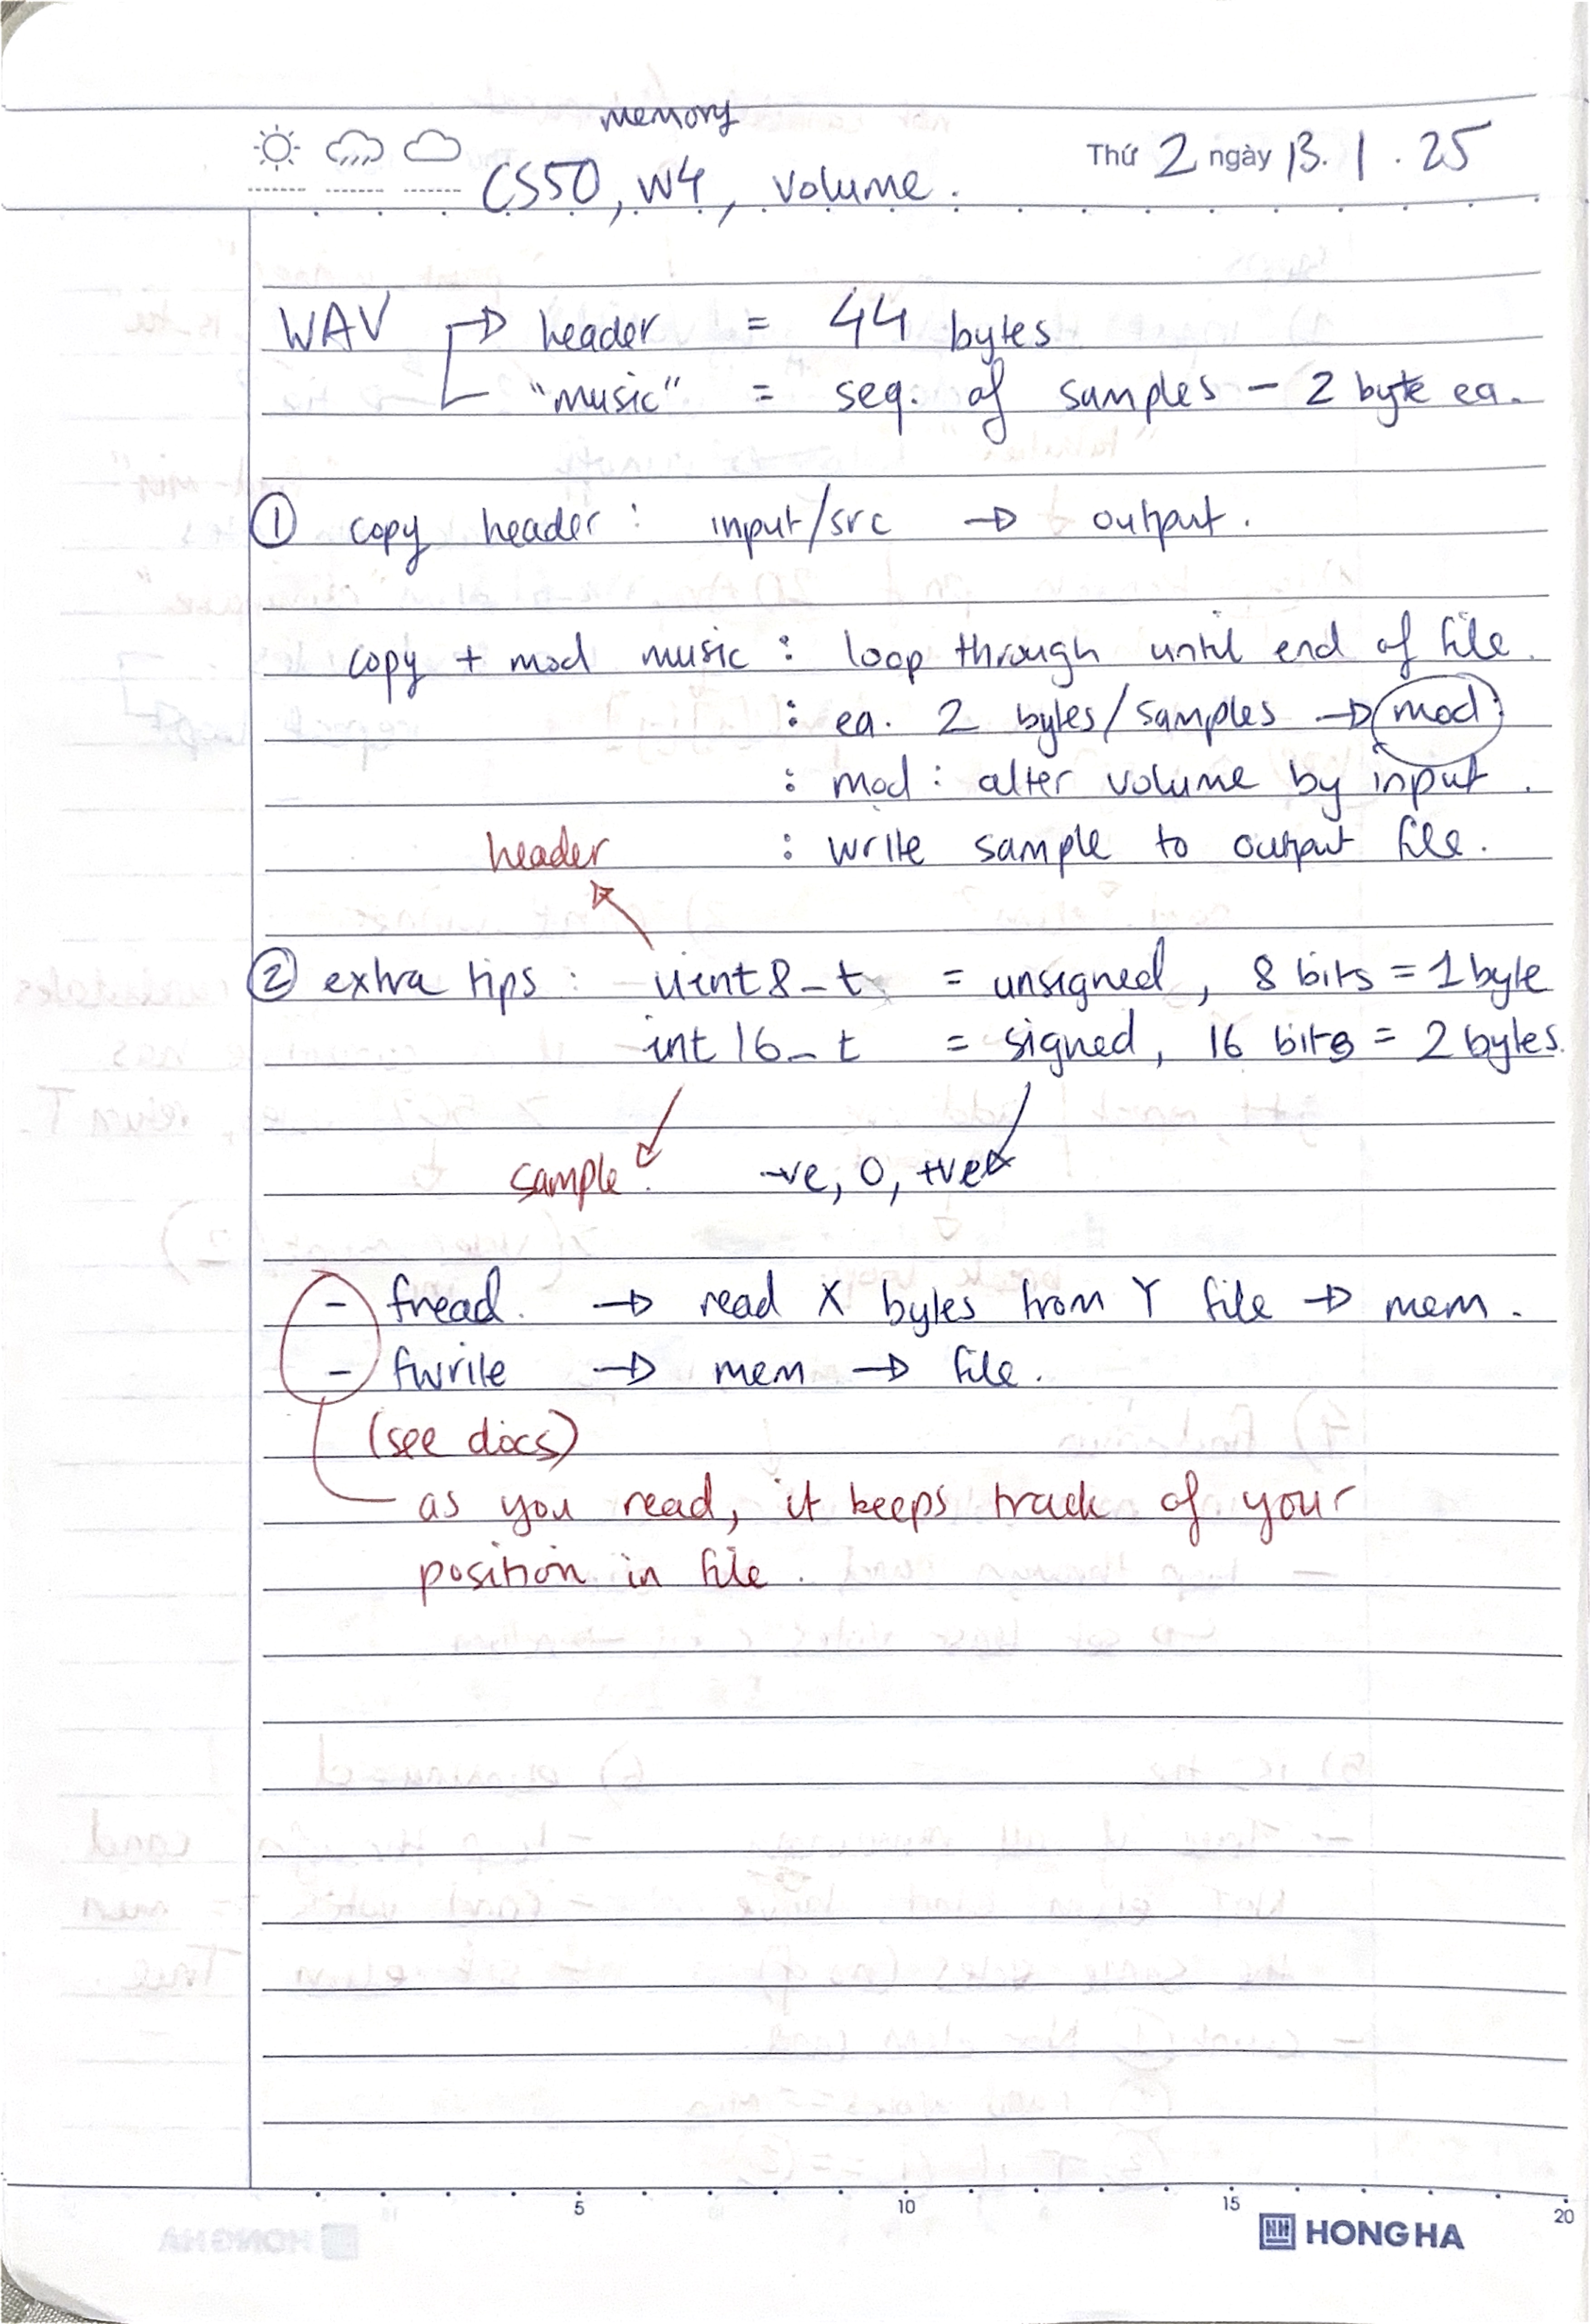 memory
Thứ 2 ngày 13.1.25
CS50, W4, volume.
WAV → header = 44 bytes
"music" = seq. of samples - 2 byte ea.
① copy header : input/src → output.
copy + mod music : loop through until end of file.
: ea. 2 bytes/samples → mod
: mod : alter volume by input.
header : write sample to output file.
② extra tips : uint8_t = unsigned, 8 bits = 1 byte
int16_t = signed, 16 bits = 2 bytes.
sample. -ve, 0, +ve
- fread. → read X bytes from Y file → mem.
- fwrite → mem → file.
(see docs)
as you read, it keeps track of your
position in file.
5 10 15 20
HONG HA